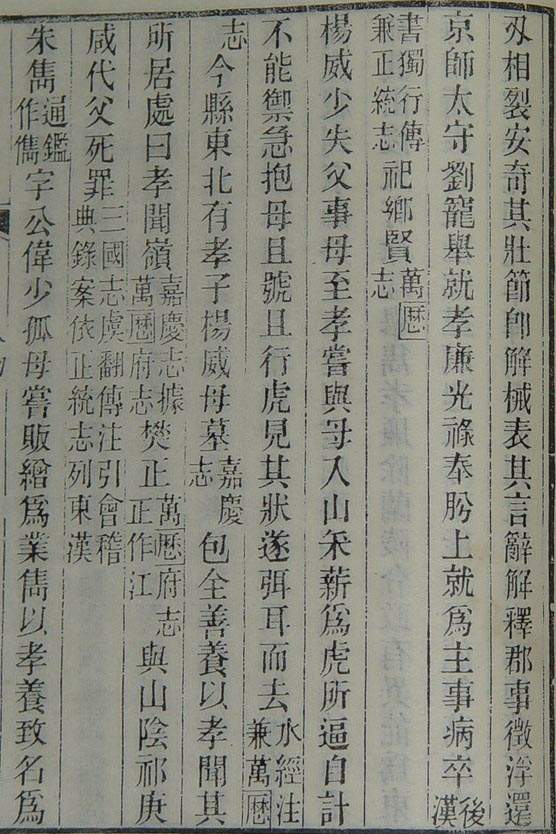 刄相裂安奇其壯節卽解械表其言辭解釋郡事徵浮還
京師太守劉寵舉就孝廉光祿奉肸上就爲主事病卒後漢
書獨行傳兼正統志祀鄉賢萬曆志
楊威少失父事母至孝嘗與母入山采薪爲虎所逼自計
不能禦急抱母且號且行虎見其狀遂弭耳而去水經注兼萬曆
志今縣東北有孝子楊威母墓嘉慶志包全善養以孝聞其
所居處曰孝聞嶺嘉慶志據萬曆府志樊正萬曆府志正作江與山陰祁庚
咸代父死罪三國志虞翻傳注引會稽典錄案依正統志列東漢
朱雋通鑑作儁字公偉少孤母嘗販繒爲業雋以孝養致名爲